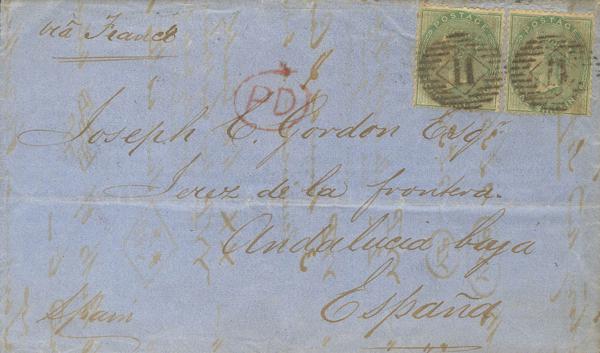 via France
POSTAGE POSTAGE
11 11
PD
Joseph C. Gordon Esqr
Jerez de la frontera.
Andalucia baja
España
Spain